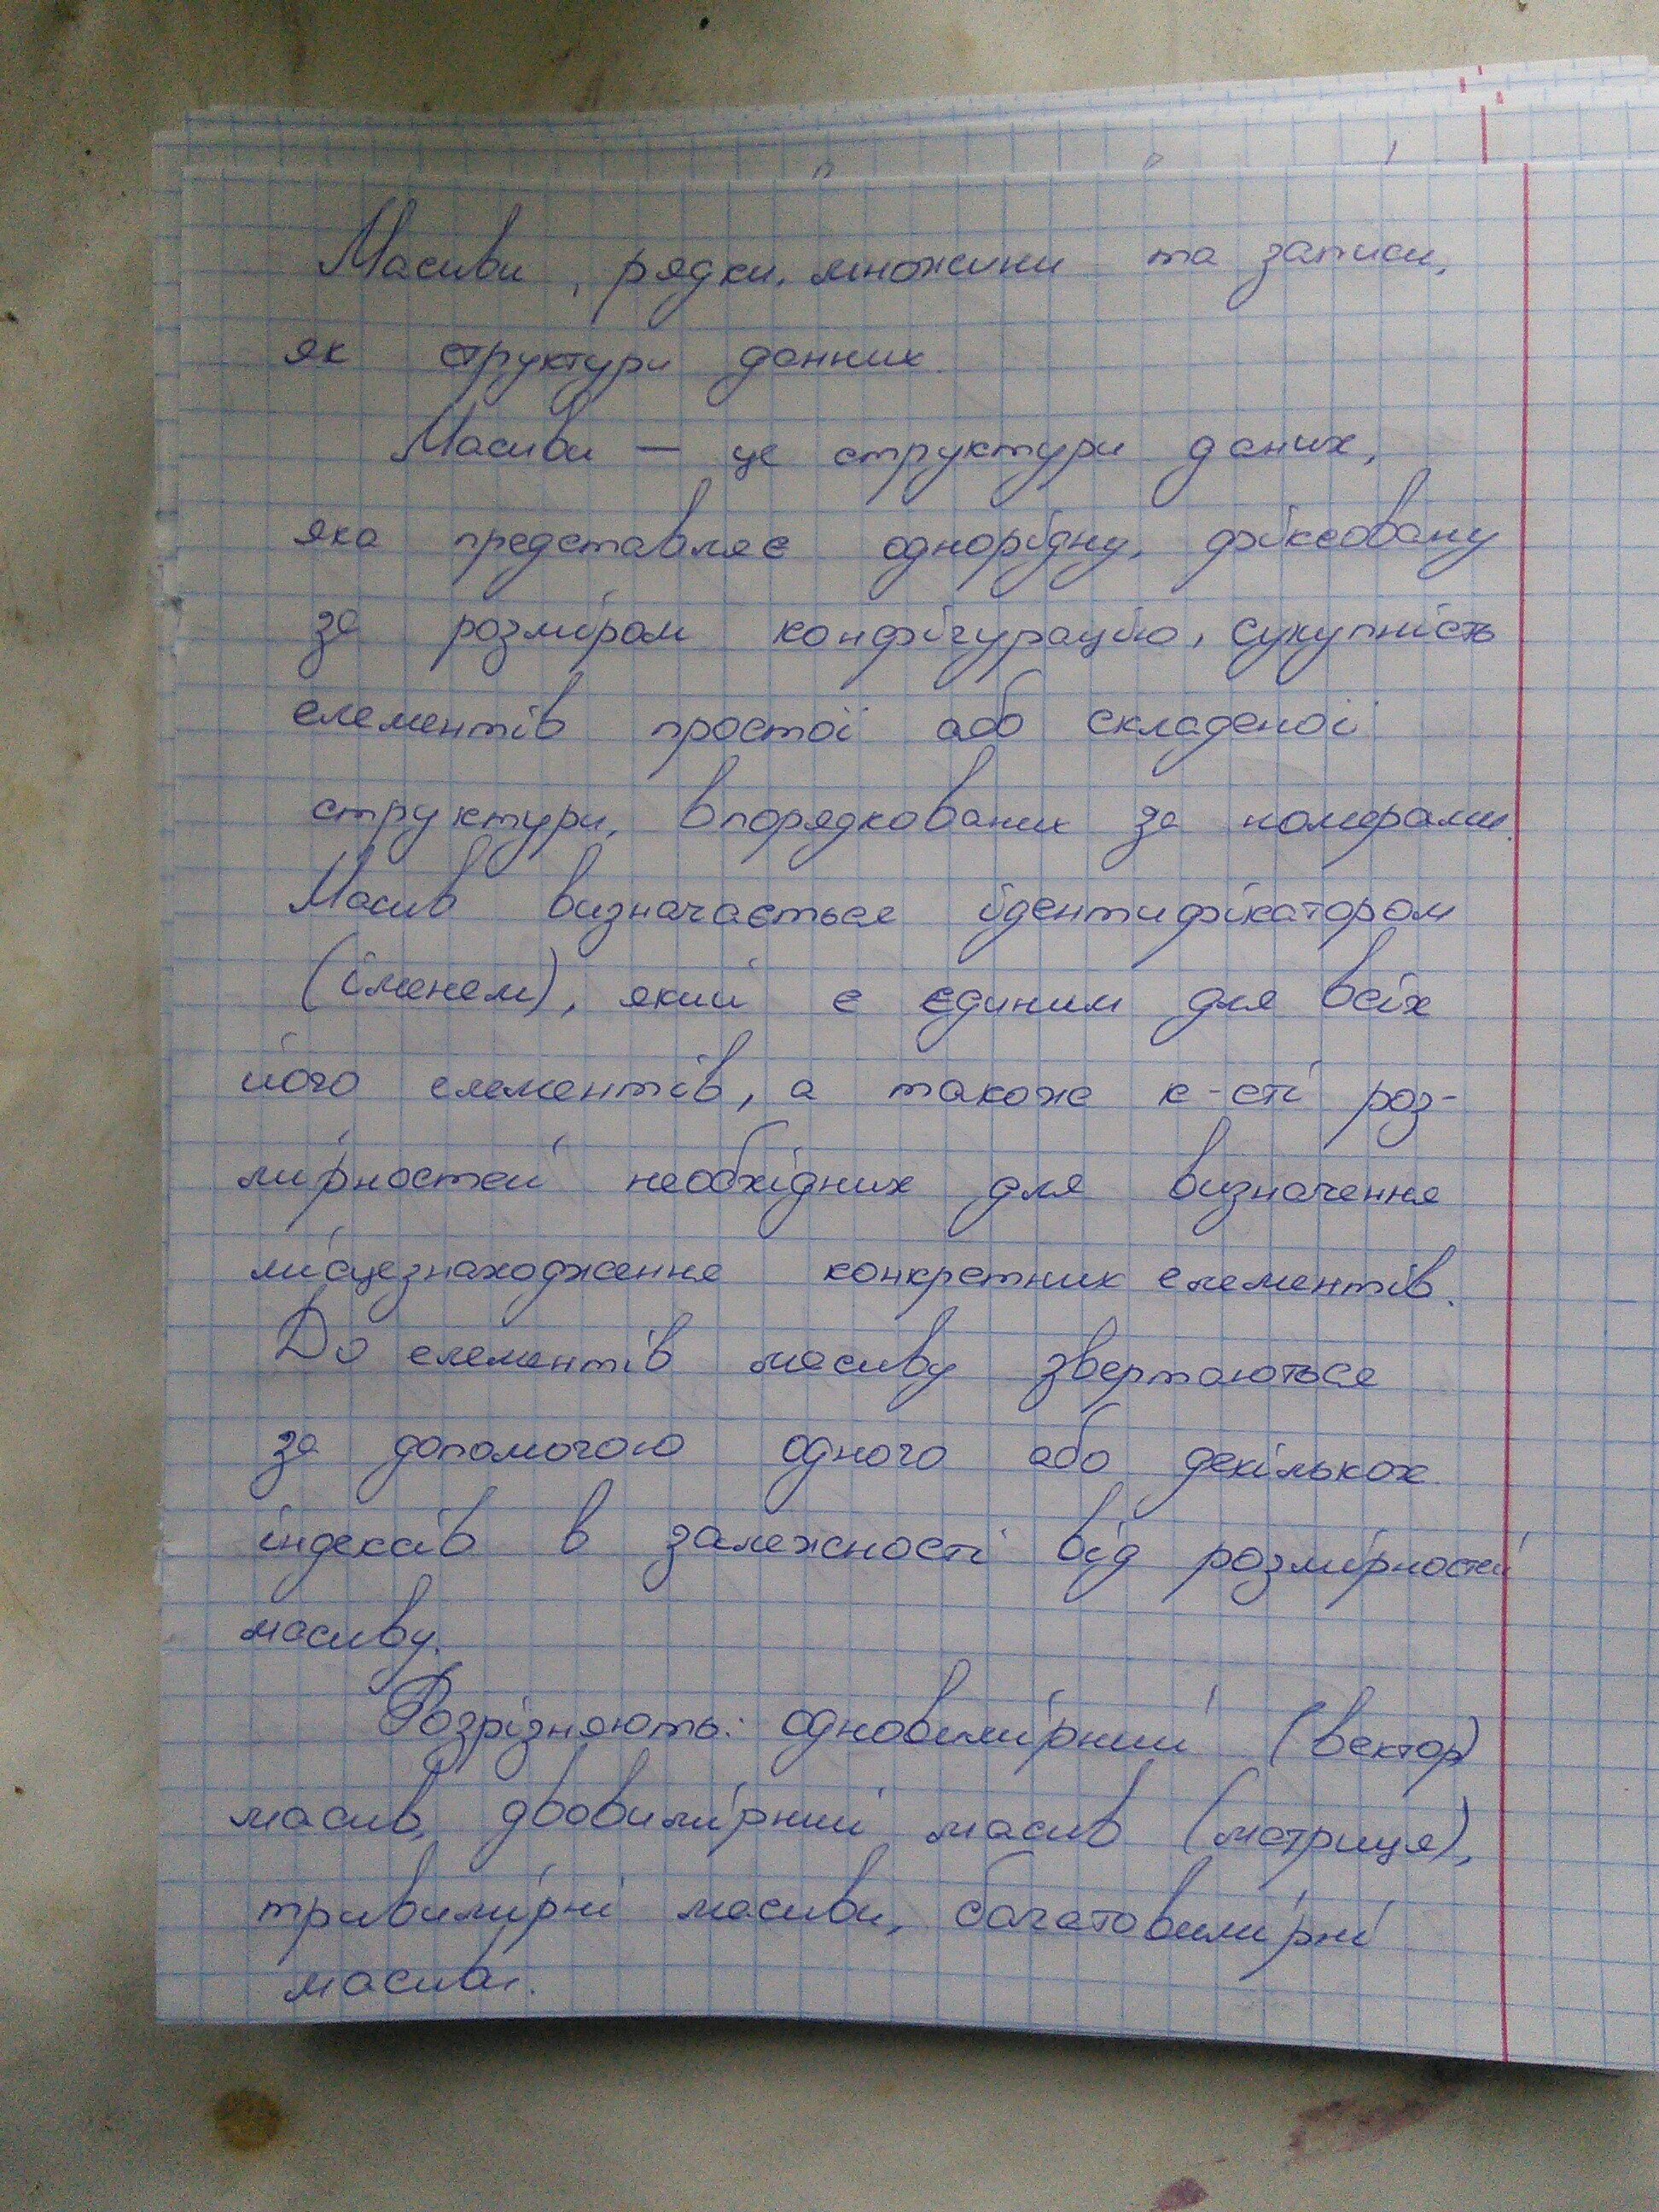 Масиви, рядки, множини та записи,
як структури данних.
Масиви — це структури даних,
яка представляє однорідну, фіксовану
за розміром конфігурацію, сукупність
елементів простої або складеної
структури, впорядкованих за номерами.
Масив визначається ідентифікатором
(іменем), який є єдиним для всіх
його елементів, а також к-сті роз-
мірностей необхідних для визначення
місцезнаходження конкретних елементів.
До елементів масиву звертаються
за допомогою одного або декількох
індексів в залежності від розмірностей
масиву.
Розрізняють: одновимірний (вектор)
масив, двовимірний масив (матриця),
тривимірні масиви, багатовимірні
масиви.